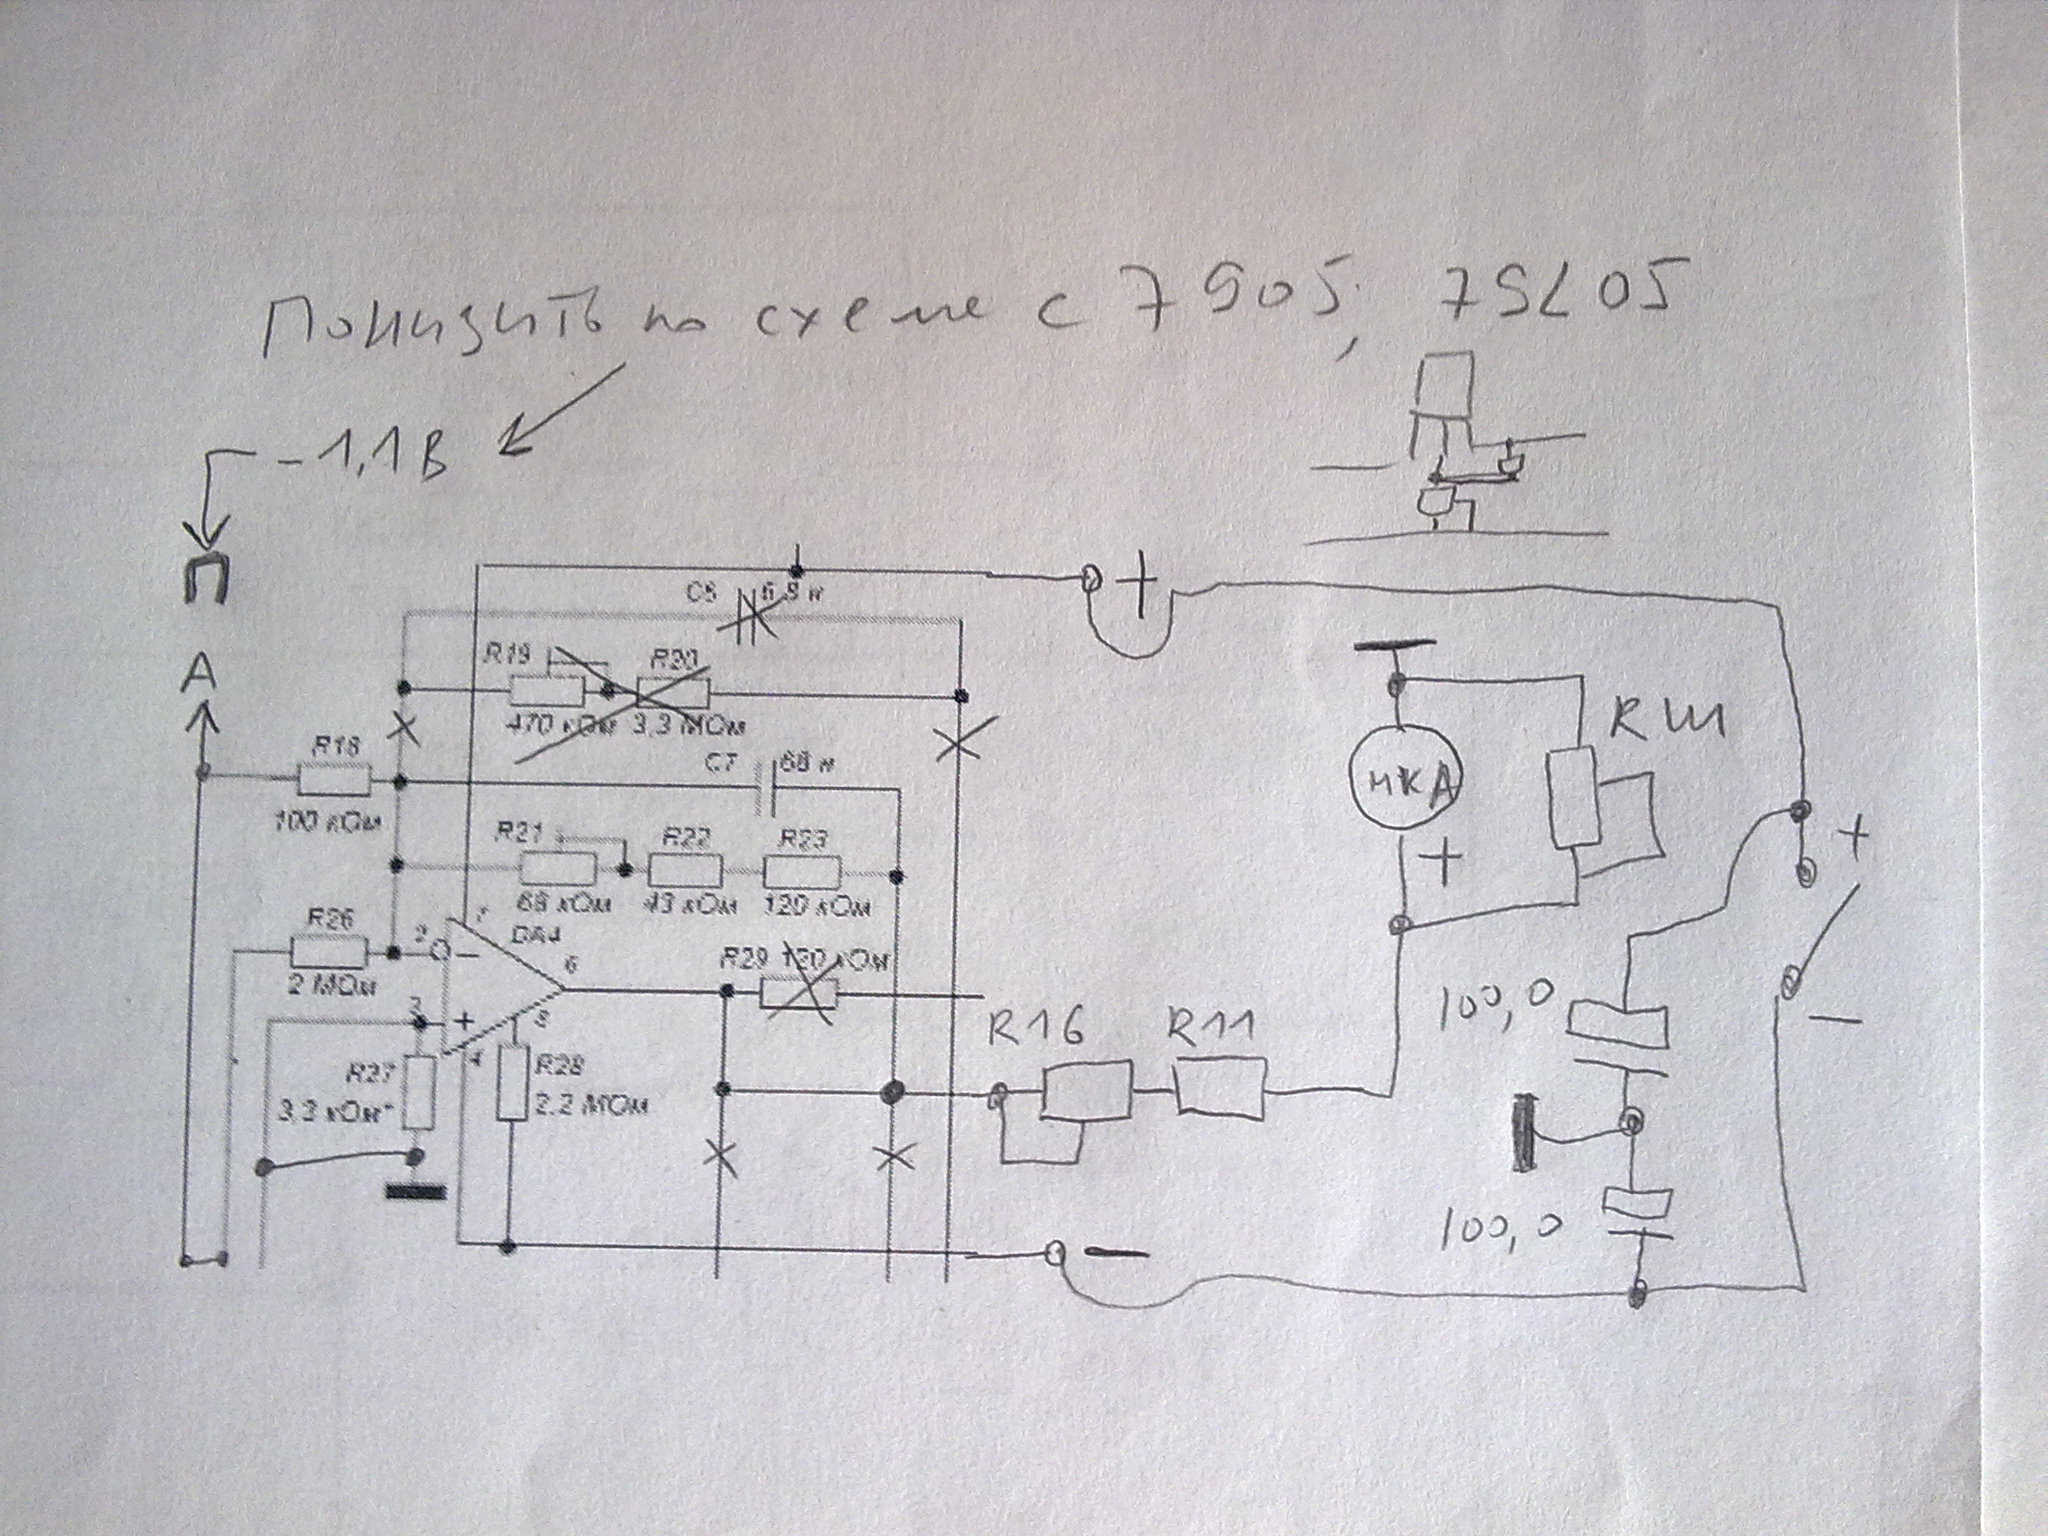 Понизить по схеме с 7905, 79L05
-1,1В
П
+
C6 6,8 н
А
R19
R20
470 кОм 3,3 МОм
RШ
R18
C7 68 н
мкА
100 кОм
R21 R22 R23
+
+
68 кОм 43 кОм 120 кОм
R26
2
7
DA4
−
6
R29 120 кОм
2 МОм
100,0
−
3
+
8
R16 R11
4
R27
R28
3,3 кОм*
2,2 МОм
100,0
−